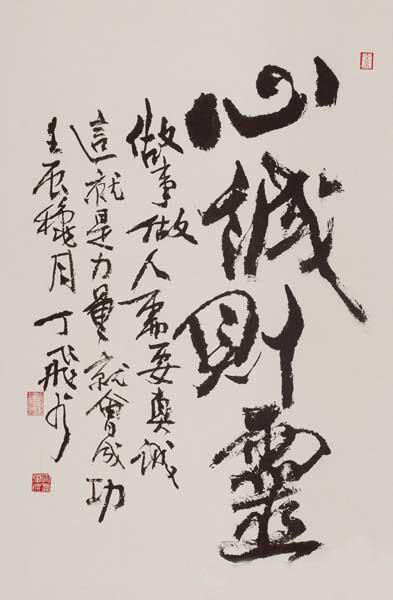 心誠則靈
做事做人需要真誠
這就是力量就會成功
壬辰穐月丁飛